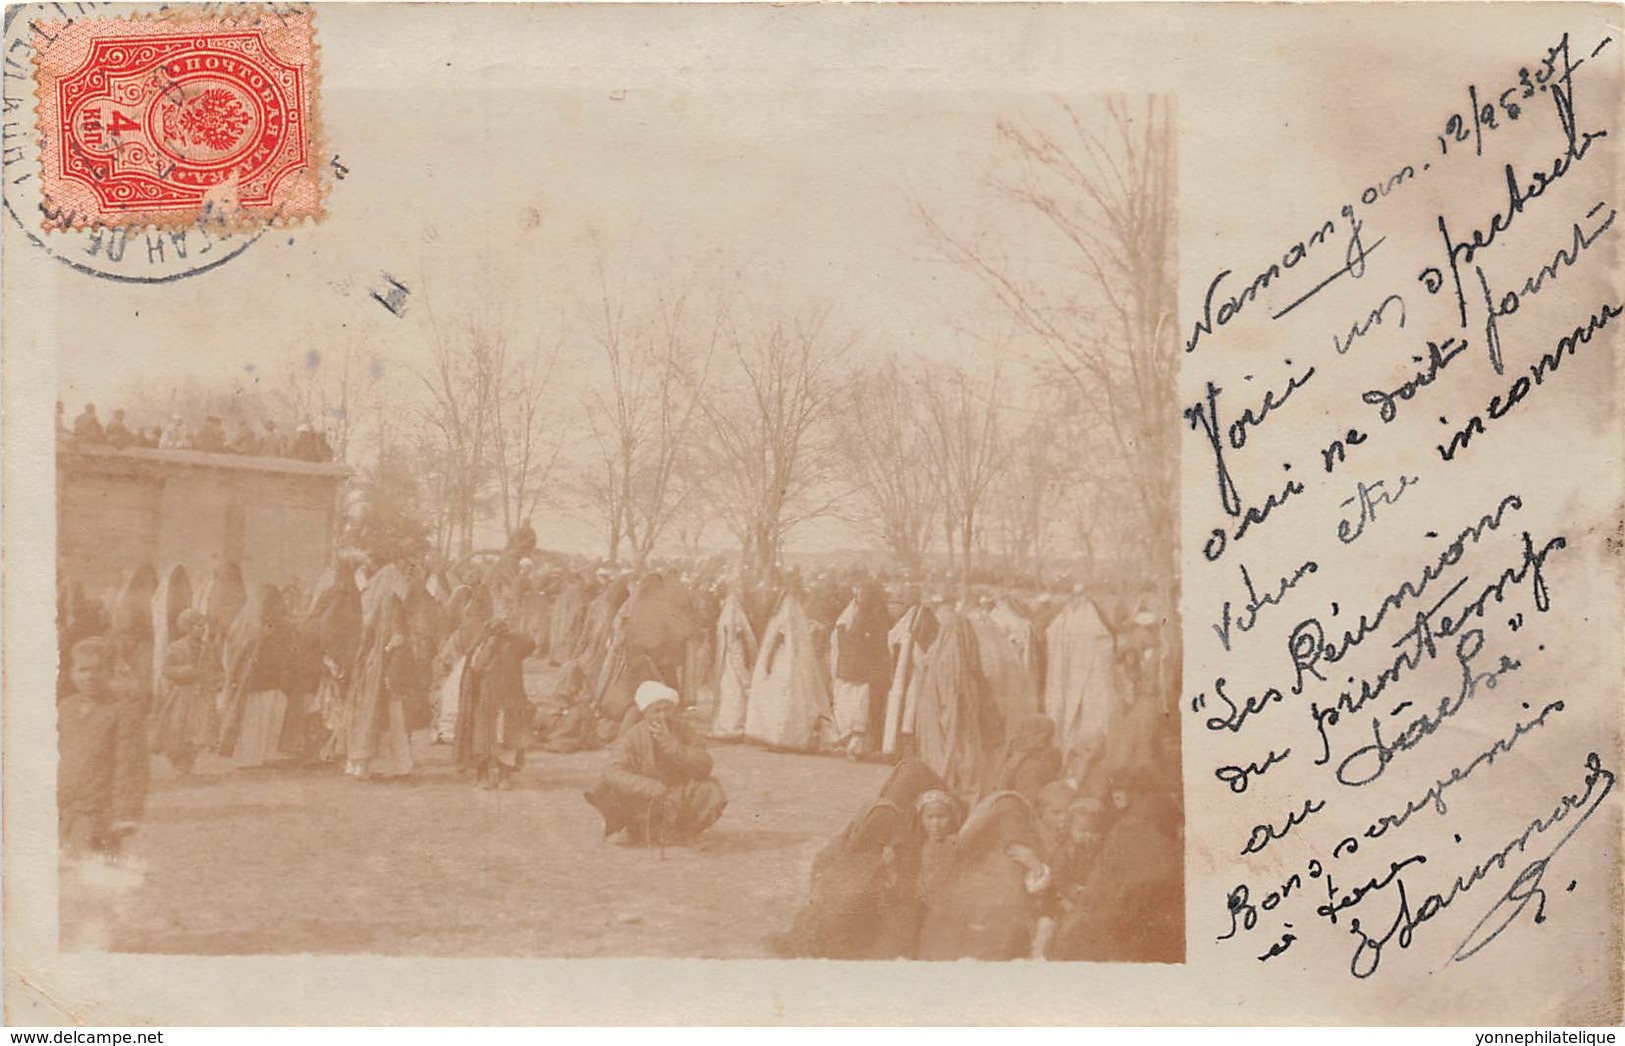 ПОЧТОВАЯ МАРКА
4
КОП
Namangan. 12/25 3.07-
Voici un spectacle
qui ne doit point
vous être inconnu
"Les Réunions
du printemps
au Tâche".
Bons souvenirs
à tous.
yonnephilatelique